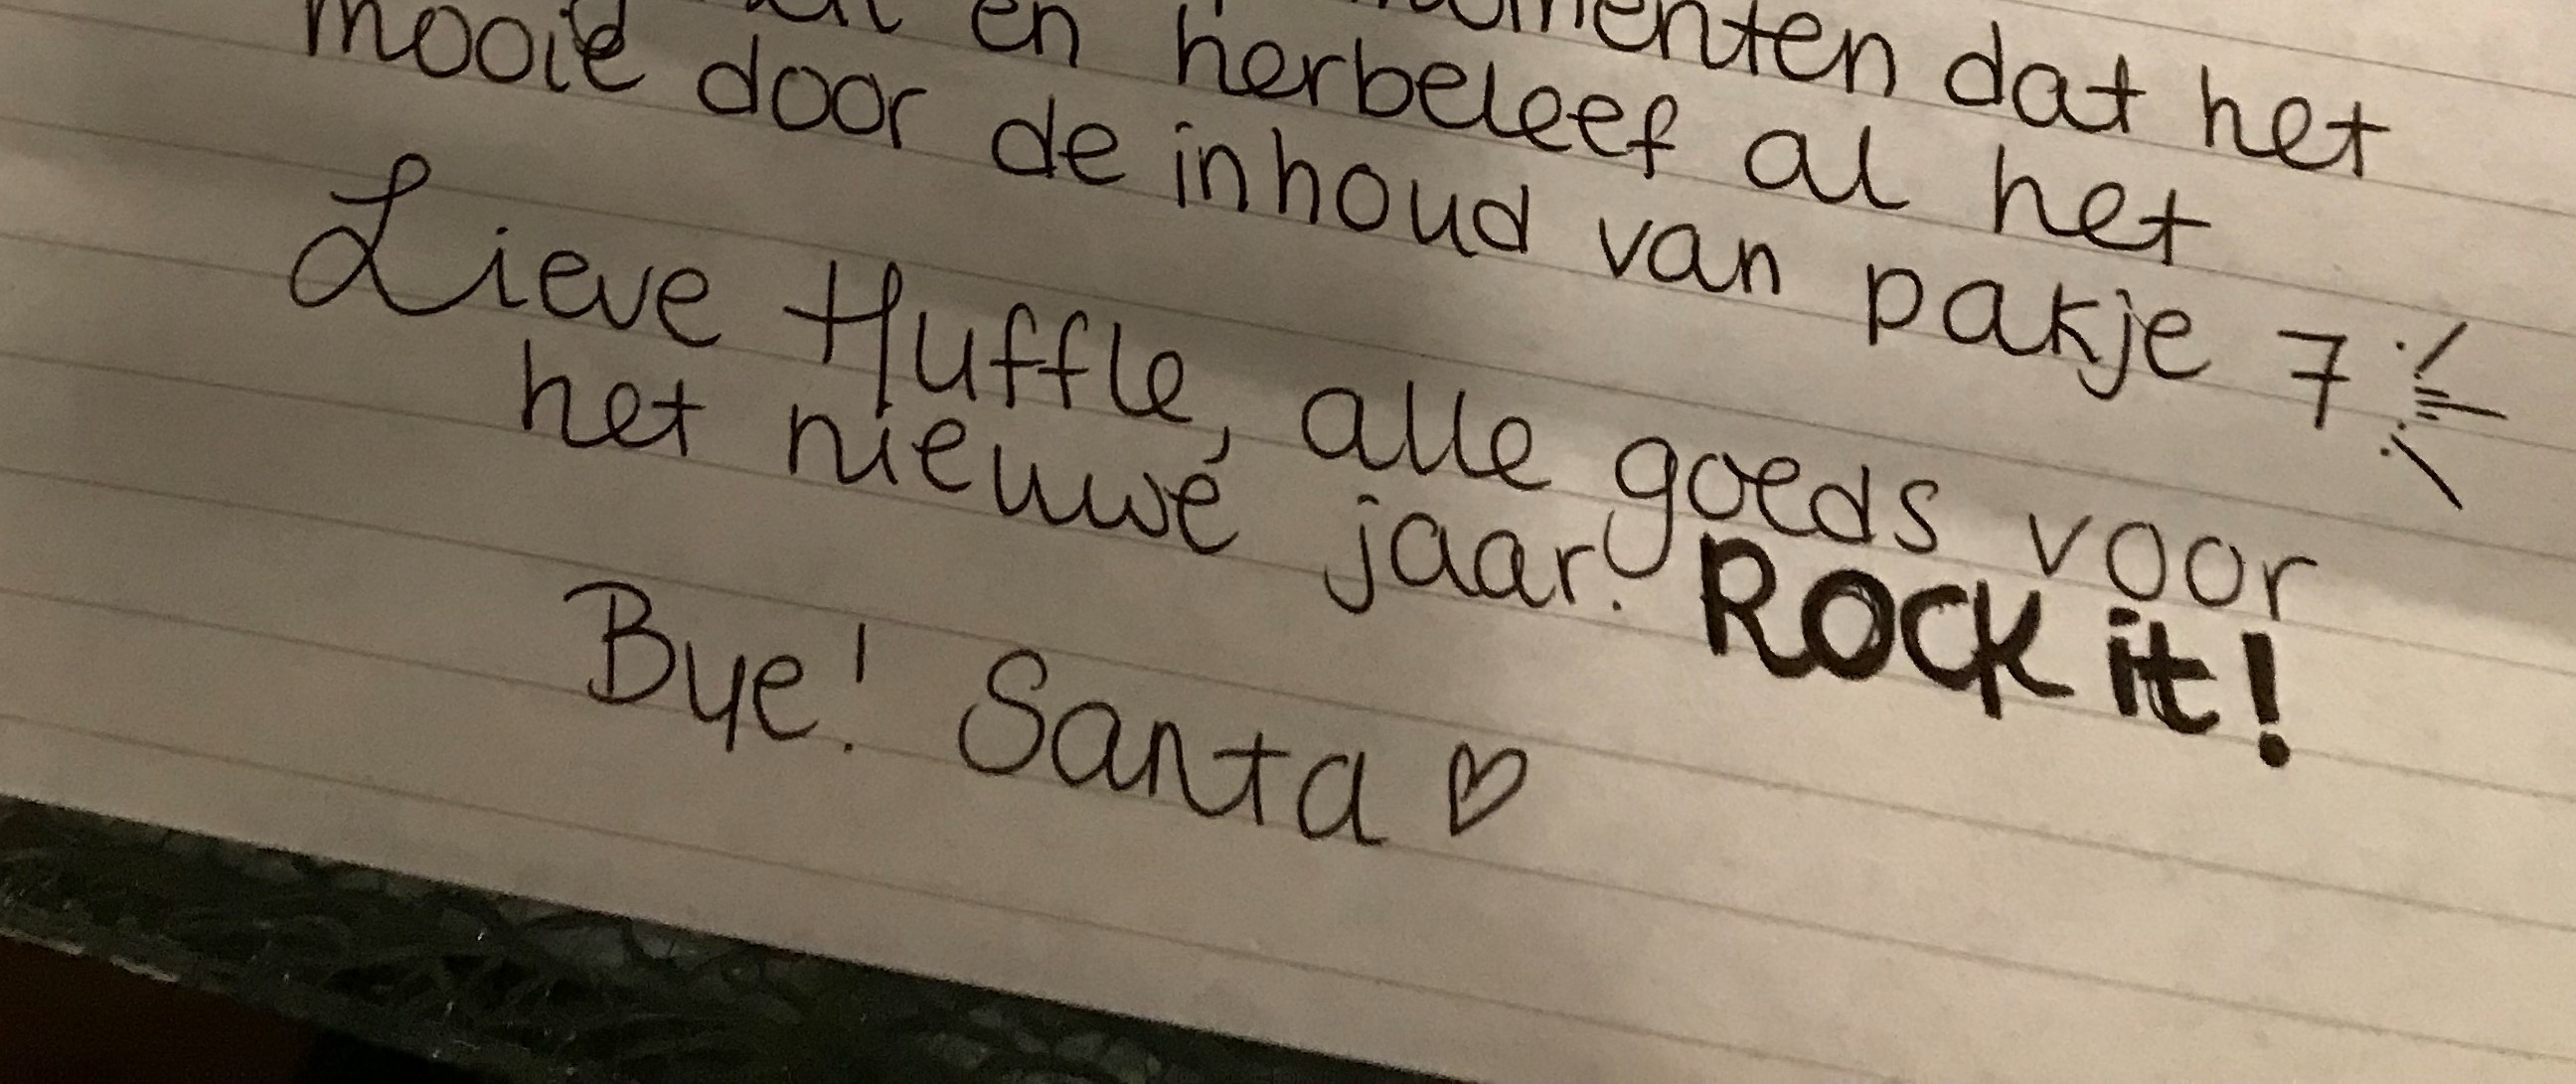 en momenten dat het
mooie door de inhoud van pakje 7
herbeleef al het
Lieve Huffle, alle goeds voor
het nieuwe jaar! Rock it!
Bye! Santa ♡